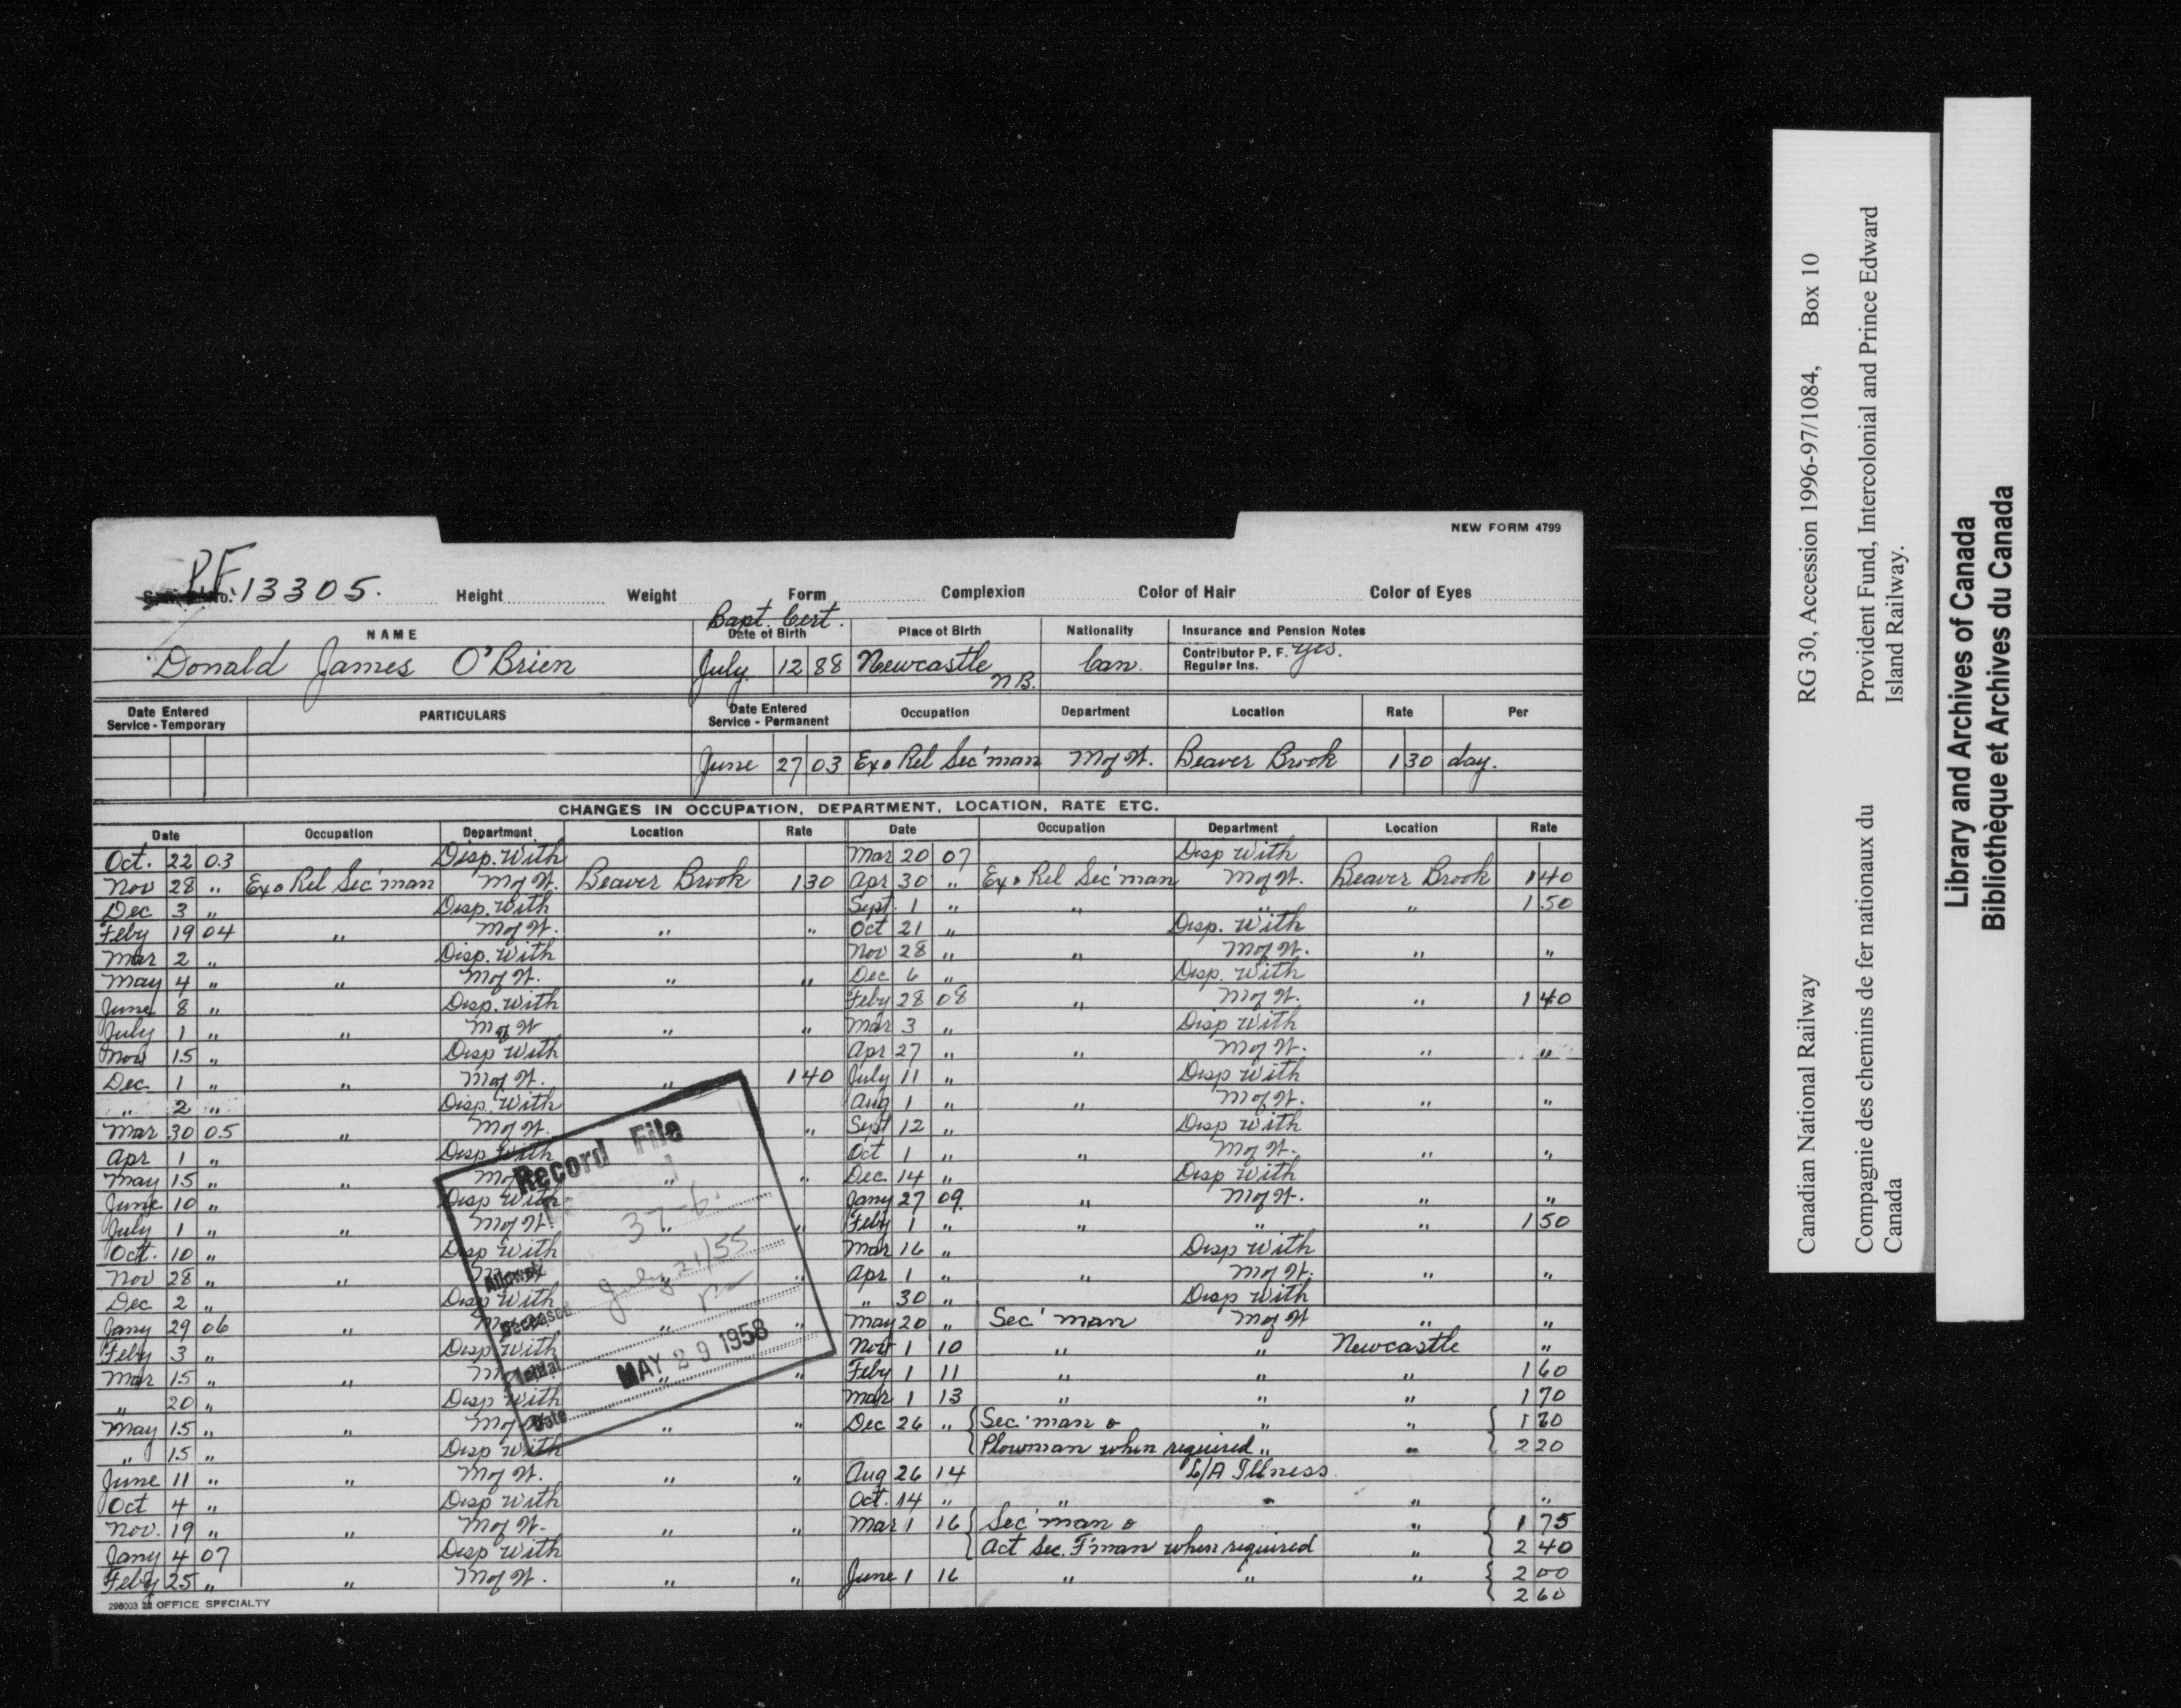 NEW FORM 4799
P.F. 13305.
Height Weight Form Complexion Color of Hair Color of Eyes
Bapt. Cert.
NAME Date of Birth Place of Birth Nationality Insurance and Pension Notes
Donald James O'Brien July 12 88 Newcastle N.B. Can. Contributor P. F. yes.
Regular Ins.
Date Entered Service - Temporary PARTICULARS Date Entered Service - Permanent Occupation Department Location Rate Per
June 27 03 Ex & Rel Sec'man M of W. Beaver Brook 1 30 day.
CHANGES IN OCCUPATION, DEPARTMENT, LOCATION, RATE ETC.
Date Occupation Department Location Rate Date Occupation Department Location Rate
Oct. 22 03 Disp. With
Nov 28 " Ex & Rel Sec'man M of W. Beaver Brook 1 30
Dec 3 " Disp. With
Feby 19 04 " M of W. " "
Mar 2 " Disp. With
May 4 " " M of W. " "
June 8 " Disp. With
July 1 " " M of W " "
Nov 15 " Disp With
Dec 1 " " M of W. " 1 40
" 2 " Disp. With
Mar 30 05 " M of W. "
Apr 1 " Disp With
May 15 " " M of W " "
June 10 " Disp With
July 1 " " M of W. " "
Oct. 10 " Disp With
Nov 28 " " M of W " "
Dec 2 " Disp With
Jany 29 06 " M of W " "
Feby 3 " Disp With
Mar 15 " " M of W " "
" 20 " Disp With
May 15 " " M of W " "
" 15 " Disp With
June 11 " " M of W. " "
Oct 4 " Disp With
Nov. 19 " " M of W. " "
Jany 4 07 Disp With
Feby 25 " " M of W. " "
Mar 20 07 Disp With
Apr 30 " Ex & Rel Sec'man M of W. Beaver Brook 1 40
Sept. 1 " " " " 1 50
Oct 21 " Disp. With
Nov 28 " " M of W. " "
Dec 6 " Disp. With
Feby 28 08 " M of W. " 1 40
Mar 3 " Disp With
Apr 27 " " M of W. " "
July 11 " Disp With
Aug 1 " " M of W. " "
Sept 12 " Disp With
Oct 1 " " M of W. " "
Dec 14 " Disp With
Jany 27 09 " M of W. " "
Feby 1 " " " " 1 50
Mar 16 " Disp With
Apr 1 " " M of W. " "
" 30 " Disp With
May 20 " Sec'man M of W " "
Nov 1 10 " " Newcastle "
Feby 1 11 " " " 1 60
Mar 1 13 " " " 1 70
Dec 26 " Sec'man & " "
Plowman when required " " 2 20
Aug 26 14 L/A Illness
Oct. 14 " " " " "
Mar 1 16 Sec'man & " 1 75
Act Sec. F'man when required " 2 40
June 1 16 " " " 2 00
2 60
Record File
37-6.
Allowed
Deceased July 21/55
Initial
Date MAY 29 1958
OFFICE SPECIALTY
Canadian National Railway RG 30, Accession 1996-97/1084, Box 10
Compagnie des chemins de fer nationaux du Canada Provident Fund, Intercolonial and Prince Edward Island Railway.
Library and Archives of Canada
Bibliothèque et Archives du Canada